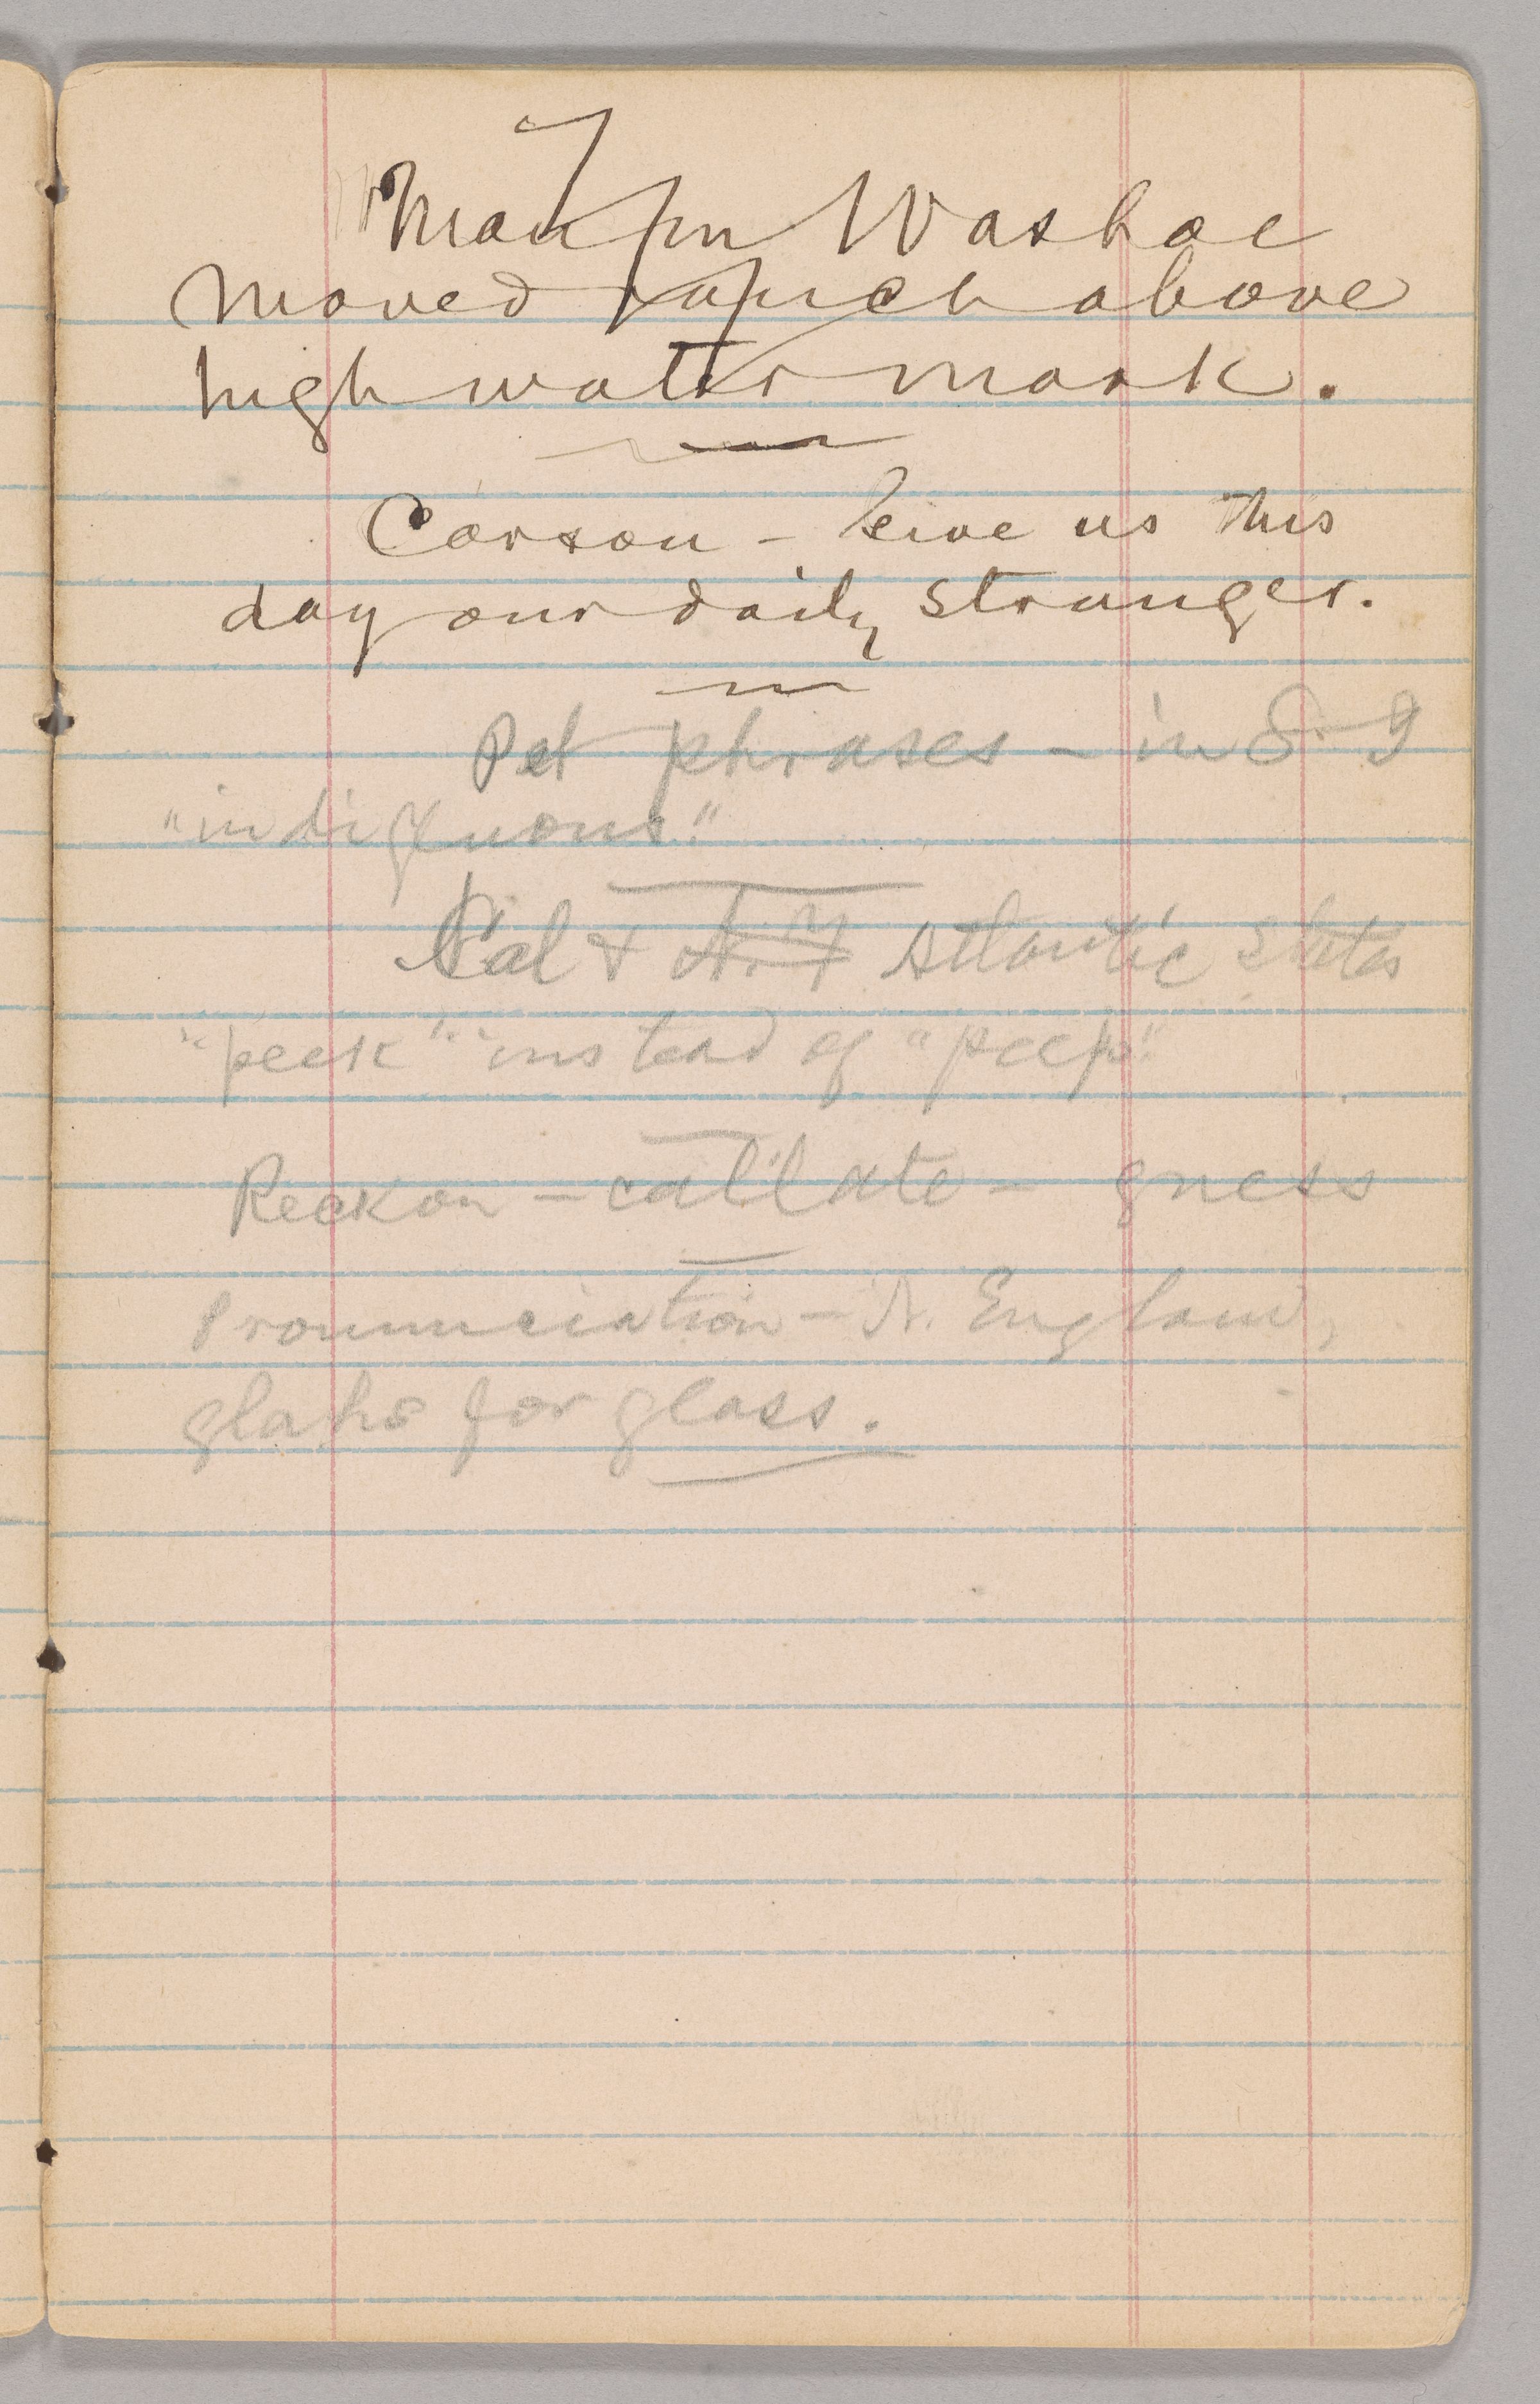 Man in Washoe
moved ranch above
high water mark.
Carson — Give us this
day our daily stranger.
Pet phrases — in S. I
"indignuous."
Cal & N.Y Atlantic States
"peek" instead of "peep."
Reckon — cal'late — guess
Pronunciation — N. England,
glahs for glass.